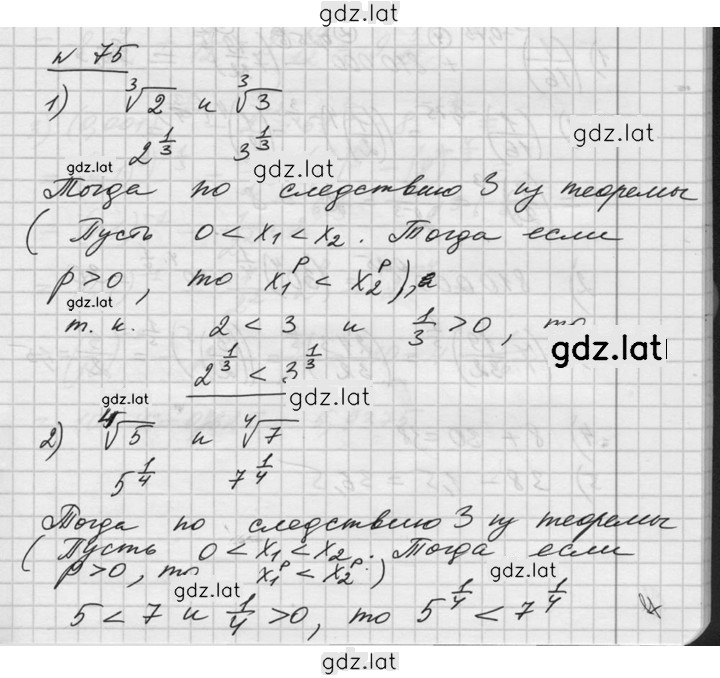 gdz.lat
№ 75
1) ∛2 и ∛3
gdz.lat
2^{1/3} 3^{1/3}
gdz.lat gdz.lat
Тогда по следствию 3 из теоремы
( Пусть 0 < x₁ < x₂. Тогда если
p > 0, то x₁^p < x₂^p ), а
gdz.lat
т. к. 2 < 3 и 1/3 > 0, то
gdz.lat
2^{1/3} < 3^{1/3}
gdz.lat gdz.lat
2) ∜5 и ∜7
5^{1/4} 7^{1/4}
Тогда по следствию 3 из теоремы
( Пусть 0 < x₁ < x₂. Тогда если
p > 0, то x₁^p < x₂^p.)
gdz.lat gdz.lat
5 < 7 и 1/4 > 0, то 5^{1/4} < 7^{1/4}
gdz.lat